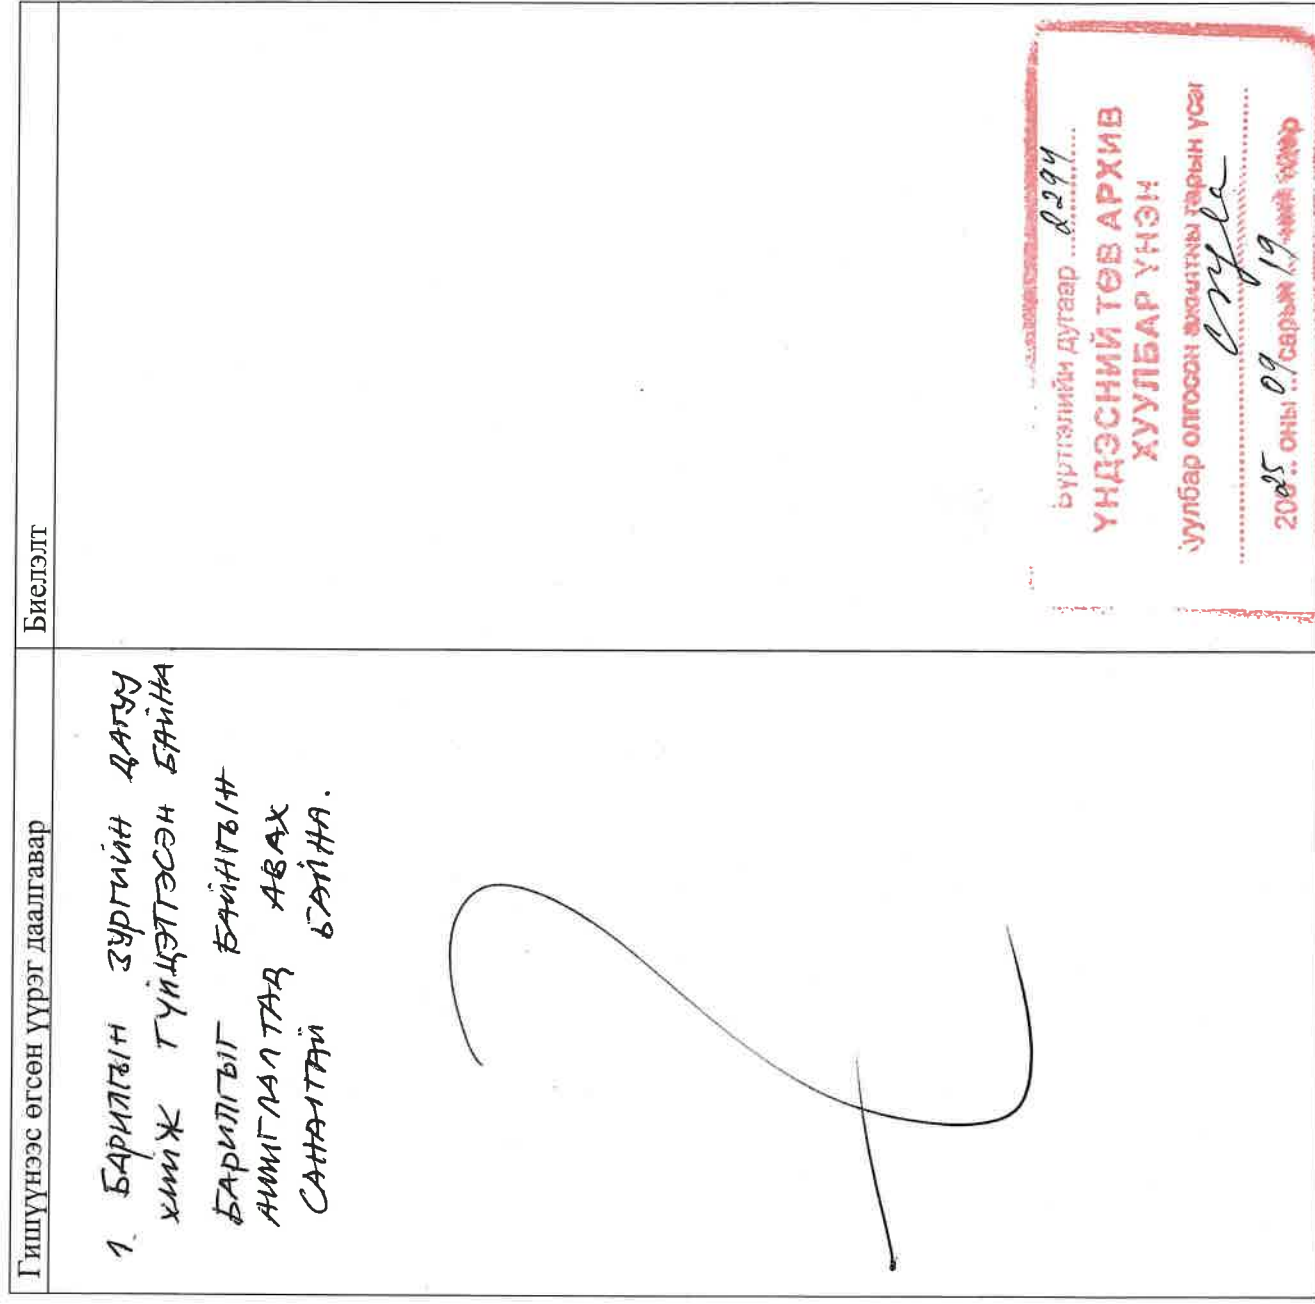 Гишүүнээс өгсөн үүрэг даалгавар
Биелэлт
1. БАРИЛГЫН ЗУРГИЙН ДАГУУ
ХИЙЖ ГҮЙЦЭТГЭСЭН БАЙНА
БАРИЛГЫГ БАЙНГЫН
АШИГЛАЛТАД АВАХ
САНАЛТАЙ БАЙНА.
бүртгэлийн дугаар ... 2294 ...
ҮНДЭСНИЙ ТӨВ АРХИВ
ХУУЛБАР ҮНЭН
уулбар олгосон ажилтны гарын үсэг
2025 оны 09 сарын 19 -ний өдөр